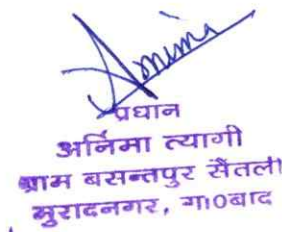 Anima
प्रधान
अनिमा त्यागी
ग्राम बसन्तपुर सैंतली
मुरादनगर, गा0बाद